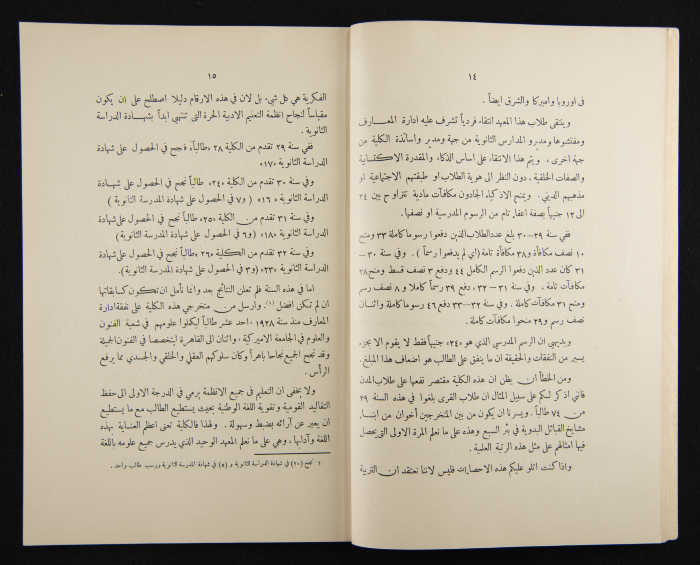 ١٤
فى اوروبا واميركا والشرق ايضاً .
وينتقى طلاب هذا المعهد انتقاء فردياً تشرف عليه ادارة المعـــارف
ومفتشوها ومديرو المدارس الثانوية من جهة ومدير واساتذة الكلية من
جهة اخرى ، ويتم هذا الانتقاء على اساس الذكاء والمقدرة الاكتسابية
والصفات الخلقية . دون النظر الى هوية الطلاب او طبقتهم الاجتماعية او
مذهبهم الدينى . ويمنح الاذكياء الجادون مكافآت مادية تتراوح بين ٢٤
الى ١٢ جنيهاً بصفة اعفاء تام من الرسوم المدرسية او نصفها .
ففى سنة ٢٩–٣٠ بلغ عدد الطلاب الذين دفعوا رسوما كاملة ٣٣ ومنح
١٠ نصف مكافأة و٣٨ مكافأة تامة (اي لم يدفعوا رسماً ) . وفي سنة ٣٠ –
٣١ كان عدد الذين دفعوا الرسم الكامل ٤٤ ودفع ٣ نصف قسط ومنح ٣٨
مكافآت تامة . وفي سنة ٣١ – ٣٢ ، دفع ٣٩ رسماً كاملا و ٨ نصف رسم
ومنح ٣١ مكافآت كاملة . وفي سنة ٣٢ – ٣٣ دفع ٤٦ رسوما كاملة واثنــان
نصف رسم و ٢٩ منحوا مكافآت كاملة .
وبديهى ان الرسم المدرسي الذي هو «٢٤» جنيهاً فقط لا يقوم الا بجزء
يسير من النفقات والحقيقة ان ما ينفق على الطالب هو اضعاف هذا المبلغ .
ومن الخطأ ان يظن ان هذه الكلية مقتصر نفعها على طلاب المدن
فاننى اذكر لكم على سبيل المثال ان طلاب القرى بلغوا في هذه السنة ٢٩
من ٧٤ طالباً . ويسرنا ان يكون من بين المتخرجين أخوان من ابنـاء
مشايخ القبائل البدوية في بئر السبع وهذه على ما نعلم المرة الاولى التى يحصل
فيها امثالهم على مثل هذه الرتبة العلمية .
واذا كنت اتلو عليكم هذه الاحصاءات فليس لاننا نعتقد ان التربية
١٥
الفكرية هي كل شيء بل لان في هذه الارقام دليلا اصطلح على ان يكون
مقياساً لنجاح انظمة التعليم الادبية الحرة التى تنتهي ابداً بشهـــادة الدراسة
الثانوية .
ففي سنة ٢٩ تقدم من الكلية ٢٨ «طالباً» فنجح في الحصول على شهادة
الدراسة الثانوية «١٧»
وفي سنة ٣٠ تقدم من الكلية «٢٤» طالباً نجح في الحصول على شهـادة
الدراسة الثانوية «١٦» ( و٧ في الحصول على شهادة المدرسة الثانوية )
وفي سنة ٣١ تقدم من الكلية «٢٥» طالباً نجح في الحصول على شهادة
الدراسة الثانوية «١٨» (و٦ في الحصول على شهادة المدرسة الثانوية)
وفي سنة ٣٢ تقدم من الكلية «٢٦» طالباً نجح في الحصول على شهادة
الدراسة الثانوية «٢٣» (و٣ في الحصول على شهادة المدرسة الثانوية).
اما في هذه السنة فلم تعلن النتائج بعد وانما نأمل ان تكون كسابقاتها
ان لم تكن افضل (١). وارسل من متخرجي هذه الكلية على نفقة ادارة
المعارف منذ سنة ١٩٢٨ ، احد عشر طالباً ليكملوا علومهم في شعبة الفنون
والعلوم في الجامعة الاميركية ، واثنان الى القاهرة ليتخصصا في الفنون الجميلة
وقد نجح الجميع نجاحا باهراً وكان سلوكهم العقلي والخلقي والجسدي مما يرفع
الرأس .
ولا يخفى ان التعليم فى جميع الانظمة يرمي في الدرجة الاولى الى حفظ
التقاليد القومية وتقوية اللغة الوطنية بحيث يستطيع الطالب مع ما يستطيع
ان يعبر عن آرائه بضبط وسهولة . ولهذا فالكلية تعنى اعظم العناية بهذه
اللغة وآدابها ، وهي على ما نعلم المعهد الوحيد الذي يدرس جميع علومه باللغة
١ نجح (٢٠) في شهادة الدراسة الثانوية و (٥) في شهادة المدرسة الثانوية ورسب طالب واحد .